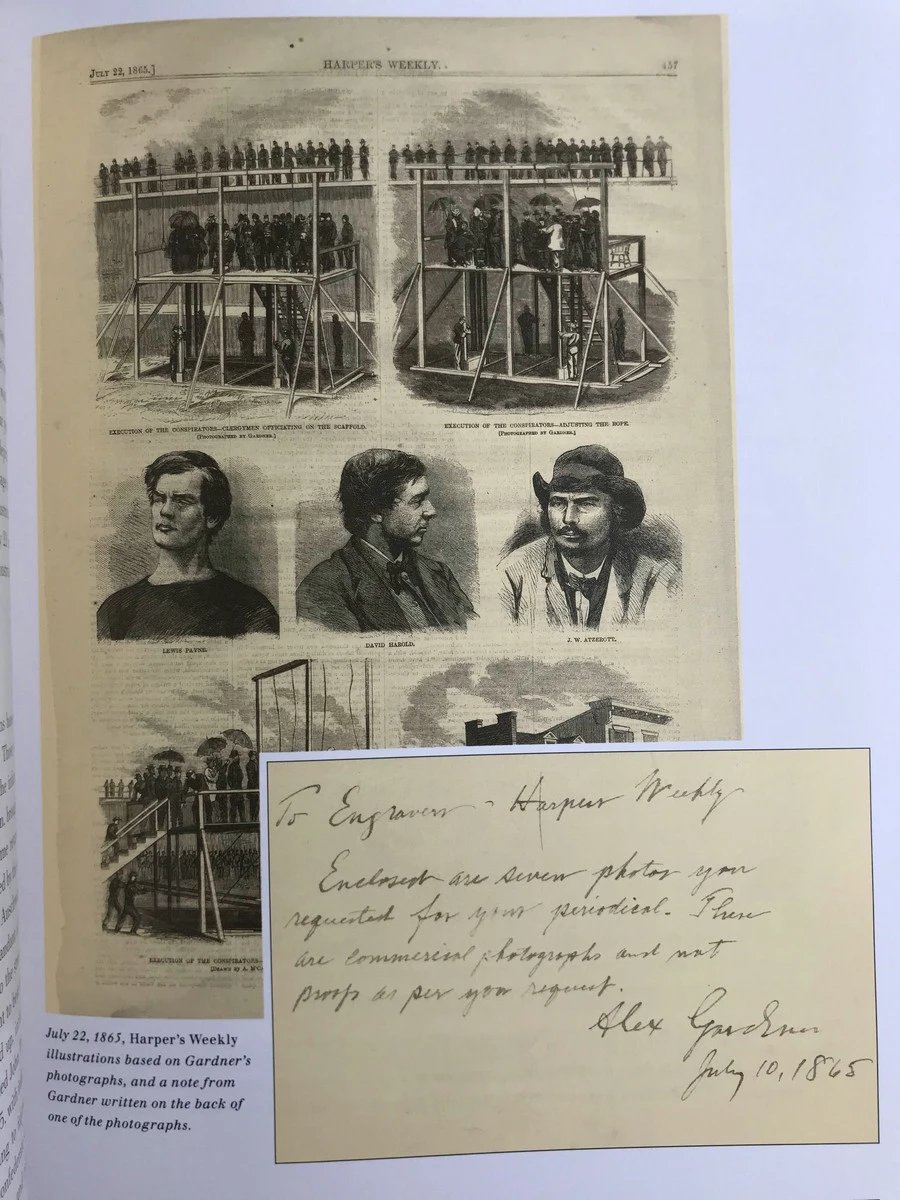 JULY 22, 1865.]
HARPER'S WEEKLY.
457
EXECUTION OF THE CONSPIRATORS—CLERGYMEN OFFICIATING ON THE SCAFFOLD.
[PHOTOGRAPHED BY GARDNER.]
EXECUTION OF THE CONSPIRATORS—ADJUSTING THE ROPE.
[PHOTOGRAPHED BY GARDNER.]
LEWIS PAYNE.
DAVID HAROLD.
J. W. ATZEROTT.
EXECUTION OF THE CONSPIRATORS—
[DRAWN BY A. M'C
To Engravers - Harpers Weekly
Enclosed are seven photos you
requested for your periodical. These
are commercial photographs and not
proofs as per your request.
Alex Gardner
July 10, 1865
July 22, 1865, Harper's Weekly
illustrations based on Gardner's
photographs, and a note from
Gardner written on the back of
one of the photographs.